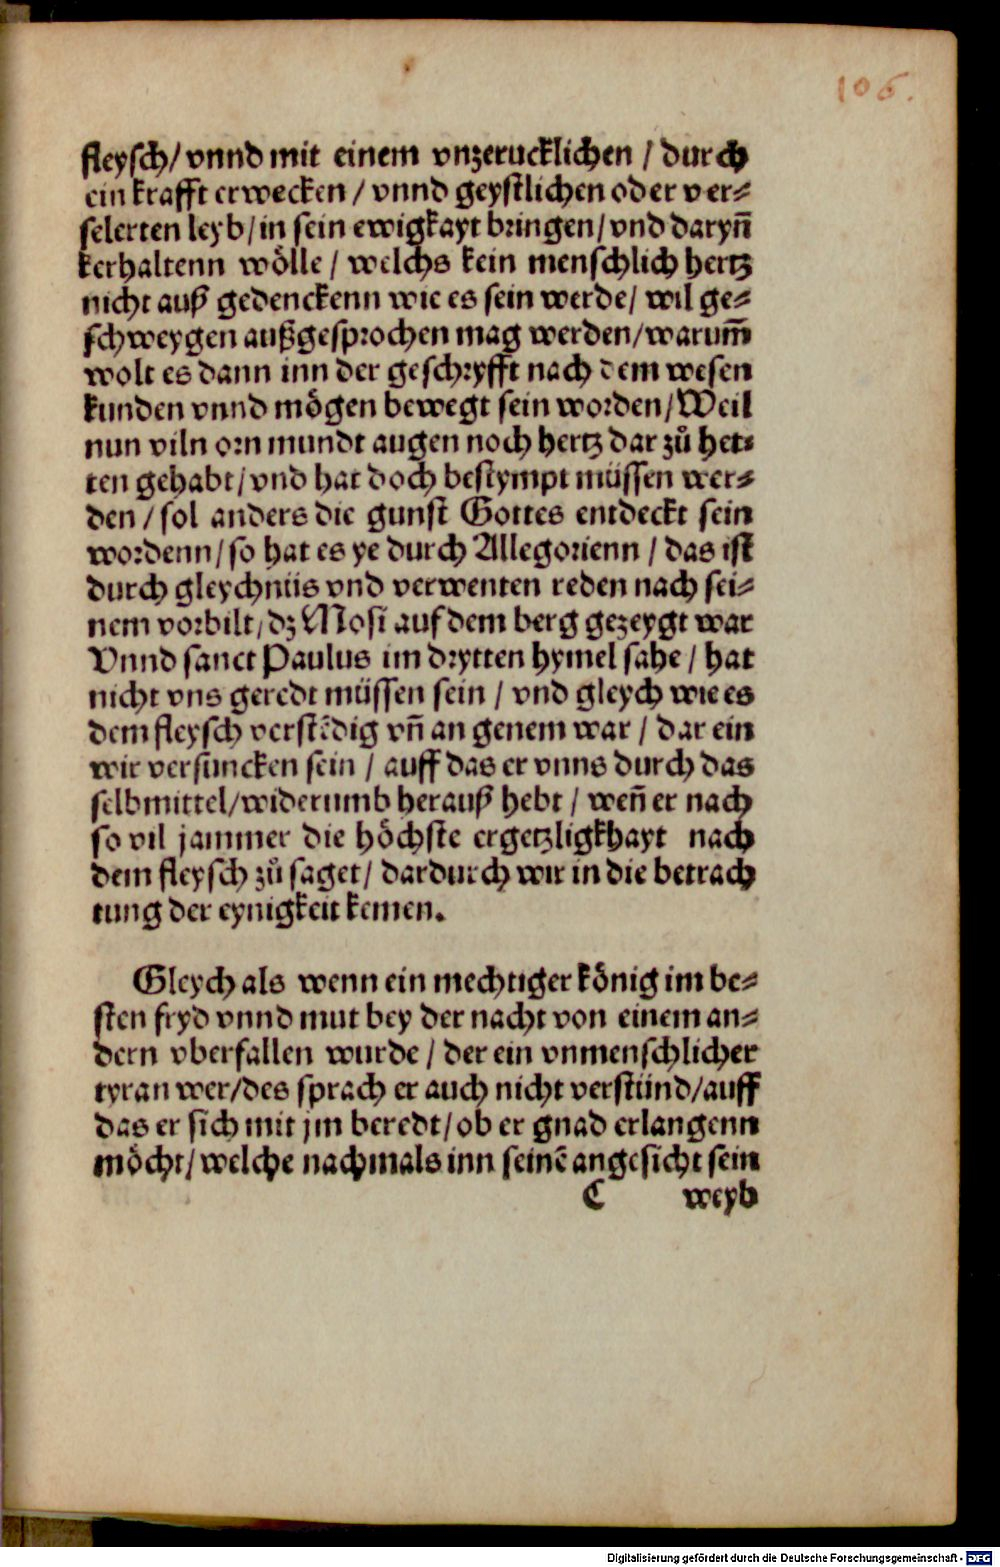 106.
fleysch/ vnnd mit einem vnzerucklichen / durch
ein krafft erwecken / vnnd geystlichen oder ver⸗
selerten leyb/ in sein ewigkayt bringen/ vnd daryn̄
kerhaltenn wölle / welchs kein menschlich hertz
nicht auß gedenckenn wie es sein werde/ wil ge⸗
schweygen außgesprochen mag werden/ warum̄
wolt es dann inn der geschryfft nach dem wesen
kunden vnnd mögen bewegt sein worden/ Weil
nun viln orn mundt augen noch hertz dar zů het⸗
ten gehabt/ vnd hat doch bestympt müssen wer⸗
den / sol anders die gunst Gottes entdeckt sein
wordenn/ so hat es ye durch Allegorienn / das ist
durch gleychnüs vnd verwenten reden nach sei⸗
nem vorbilt/ dz Mosi auf dem berg gezeygt war
Vnnd sanct Paulus im drytten hymel sahe / hat
nicht vns geredt müssen sein / vnd gleych wie es
dem fleysch verstēdig vn̄ an genem war / dar ein
wir versuncken sein / auff das er vnns durch das
selbmittel/ widerumb herauß hebt / wen̄ er nach
so vil jammer die höchste ergetzligkhayt nach
dem fleysch zů saget/ dardurch wir in die betrach
tung der eynigkeit kemen.
Gleych als wenn ein mechtiger könig im be⸗
sten fryd vnnd mut bey der nacht von einem an⸗
dern vberfallen wurde / der ein vnmenschlicher
tyran wer/ des sprach er auch nicht verstünd/ auff
das er sich mit jm beredt/ ob er gnad erlangenn
möcht/ welche nachmals inn seinē angesicht sein
C weyb
Digitalisierung gefördert durch die Deutsche Forschungsgemeinschaft - DFG